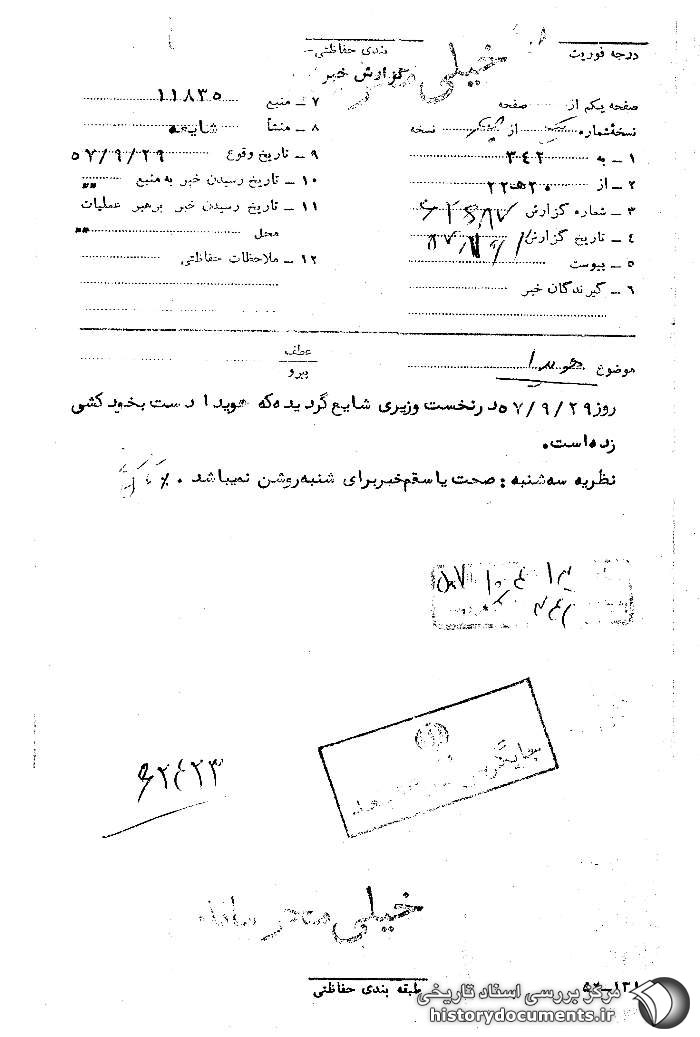 درجه فوریت
بندی حفاظتی
خیلی
گزارش خبر
صفحه یکم از صفحه
نسخه شماره از نسخه
۱ ــ به ۳۴۲
۲ ــ از ۲۰ هـ ۲۲
۳ ــ شماره گزارش
۴ ــ تاریخ گزارش
۵ ــ پیوست
۶ ــ گیرندگان خبر
۷ ــ منبع ۱۱۸۳۵
۸ ــ منشأ شایعه
۹ ــ تاریخ وقوع ۵۷/۹/۲۹
۱۰ ــ تاریخ رسیدن خبر به منبع ""
۱۱ ــ تاریخ رسیدن خبر برهبر عملیات
محل ""
۱۲ ــ ملاحظات حفاظتی
موضوع هویدا
عطف
پیرو
روز ۵۷/۹/۲۹ در نخست وزیری شایع گردیده که هویدا دست بخود کشی
زده است.
نظریه سه شنبه : صحت یا سقم خبر برای شنبه روشن نمیباشد .
۶۲۴۲۳
خیلی
طبقه بندی حفاظتی
۵۲-۱۳۱
مرکز بررسی اسناد تاریخی
historydocuments.ir